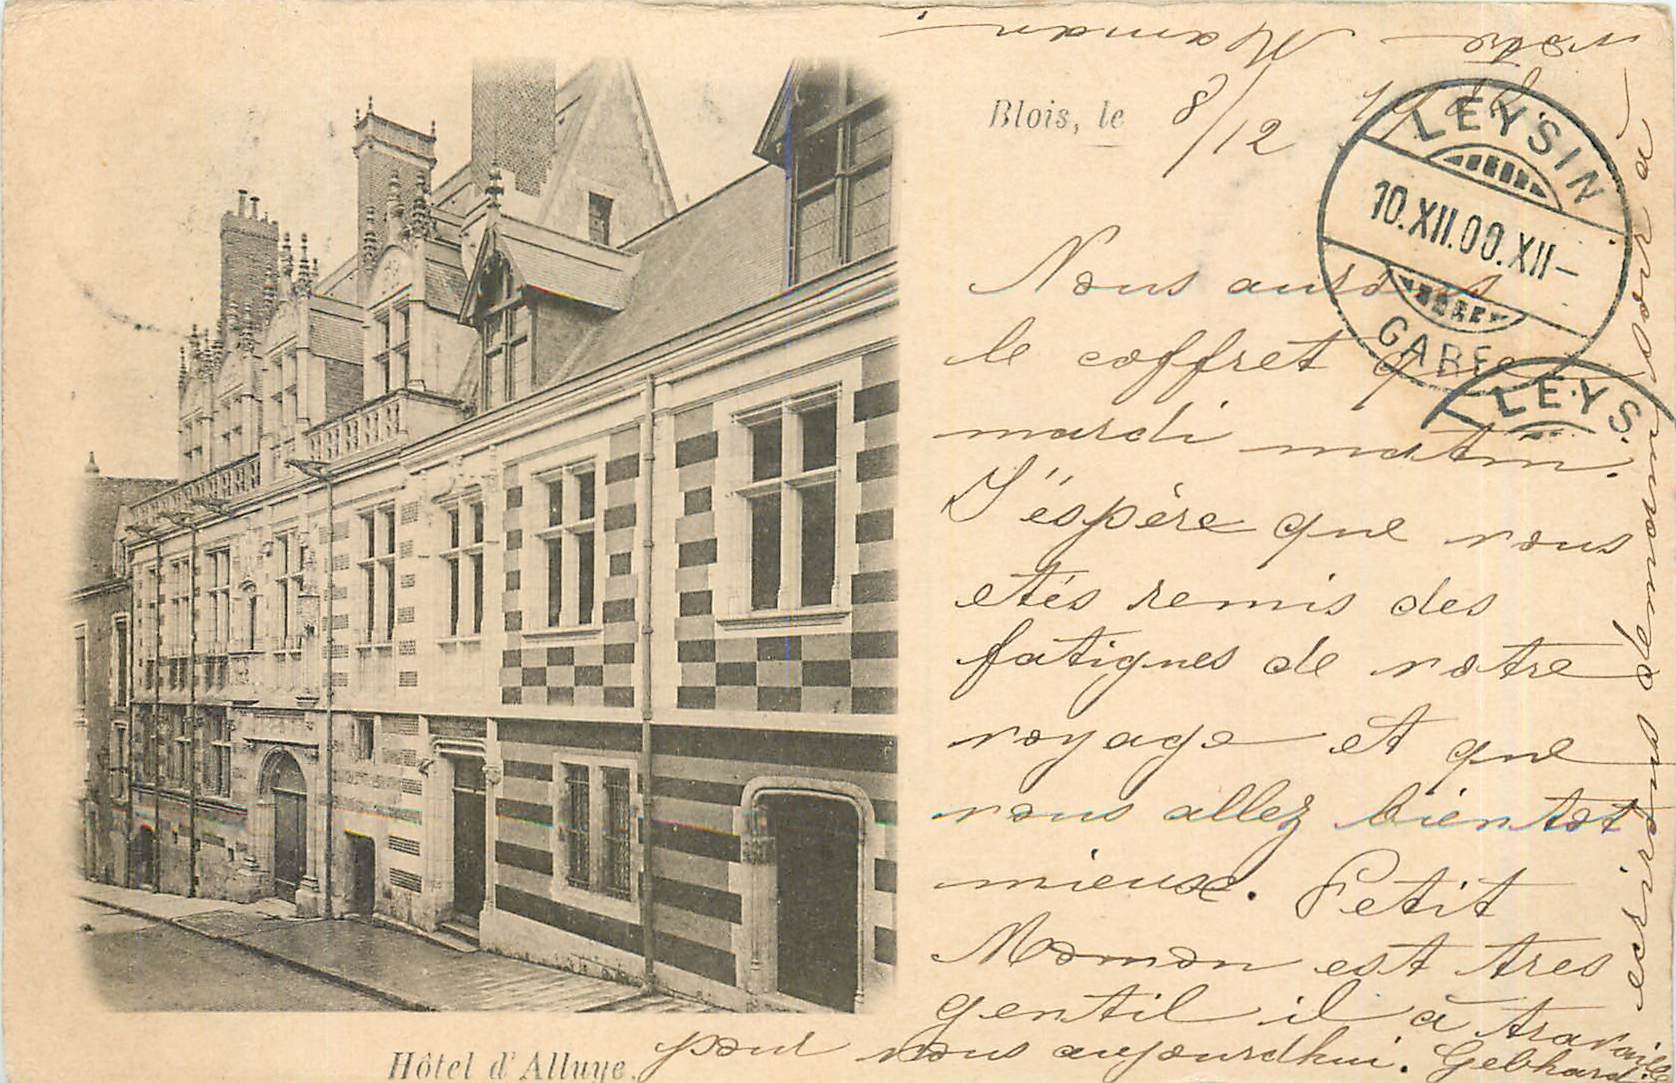 Blois, le 8/12 19
LEYSIN
10.XII.00.XII-
GARE
LEYS
Nous aurons
le coffret
mardi matin.
J'éspère que vous
etés remis des
fatignes de votre
voyage et que
vous allez bientot
mieux. Petit
Momon est tres
gentil il à travaillé
pour nous aujourdhui. Gebhard
ecrirons demain soir à
votre Maman
Hôtel d'Alluye.